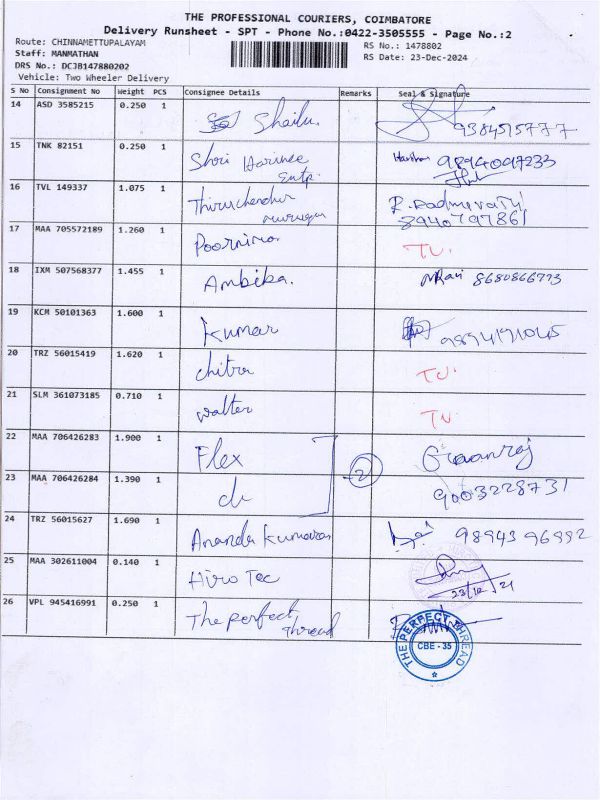 THE PROFESSIONAL COURIERS, COIMBATORE
Delivery Runsheet - SPT - Phone No.:0422-3505555 - Page No.:2
Route: CHINNAMETTUPALAYAM
Staff: MANMATHAN
DRS No.: DCJB147880202
Vehicle: Two Wheeler Delivery
RS No.: 1478802
RS Date: 23-Dec-2024
S No Consignment No Weight PCS Consignee Details Remarks Seal & Signature
14 ASD 3585215 0.250 1 Shailu.
15 TNK 82151 0.250 1 Shri Harinee 9894097233
Entp.
16 TVL 149337 1.075 1 Thiruchendur R. Padmavathi
murugan 8940797861
17 MAA 705572189 1.260 1 Poornima TU.
18 IXM 507568377 1.455 1 Ambika. 8680866773
19 KCM 50101363 1.600 1 Kumar 9894191045
20 TRZ 56015419 1.620 1 chitra TU.
21 SLM 361073185 0.710 1 walter TU.
22 MAA 706426283 1.900 1 Flex
2
23 MAA 706426284 1.390 1 do 9003228731
24 TRZ 56015627 1.690 1 Ananda Kumaran
25 MAA 302611004 0.140 1 Hiro Tec
26 VPL 945416991 0.250 1 The perfect
thread
THE PERFECT THREAD
CBE - 35